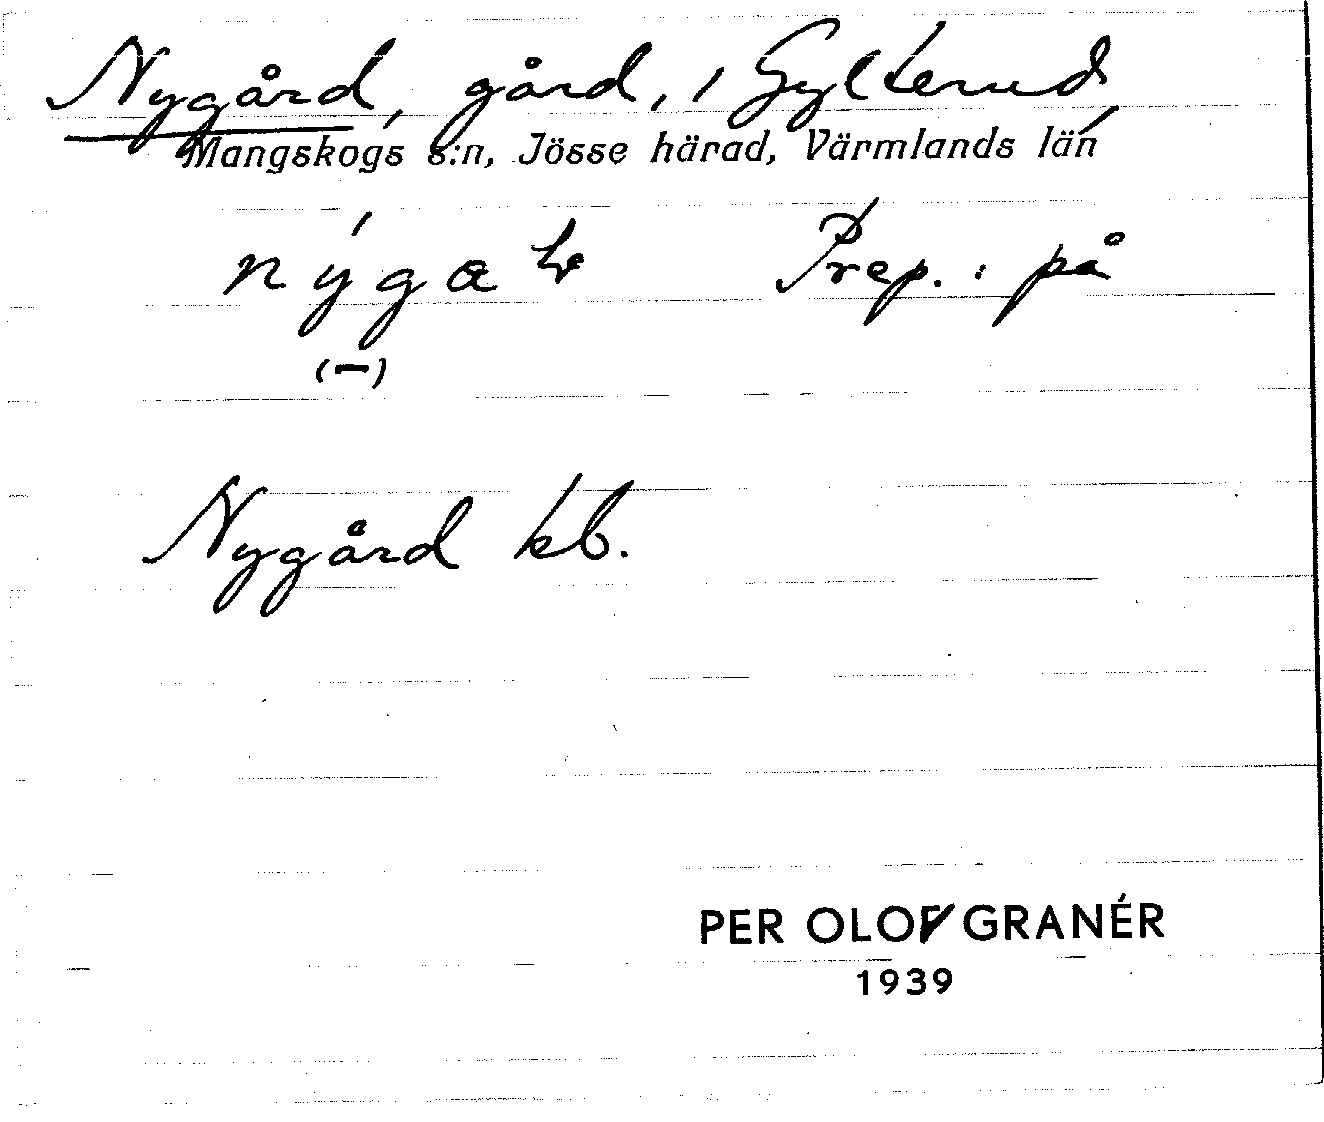 Nygård, gård, i Gylterud,
Mangskogs s:n, Jösse härad, Värmlands län
Prep. : på
(–)
Nygård kb.
PER OLOF GRANÉR
1939